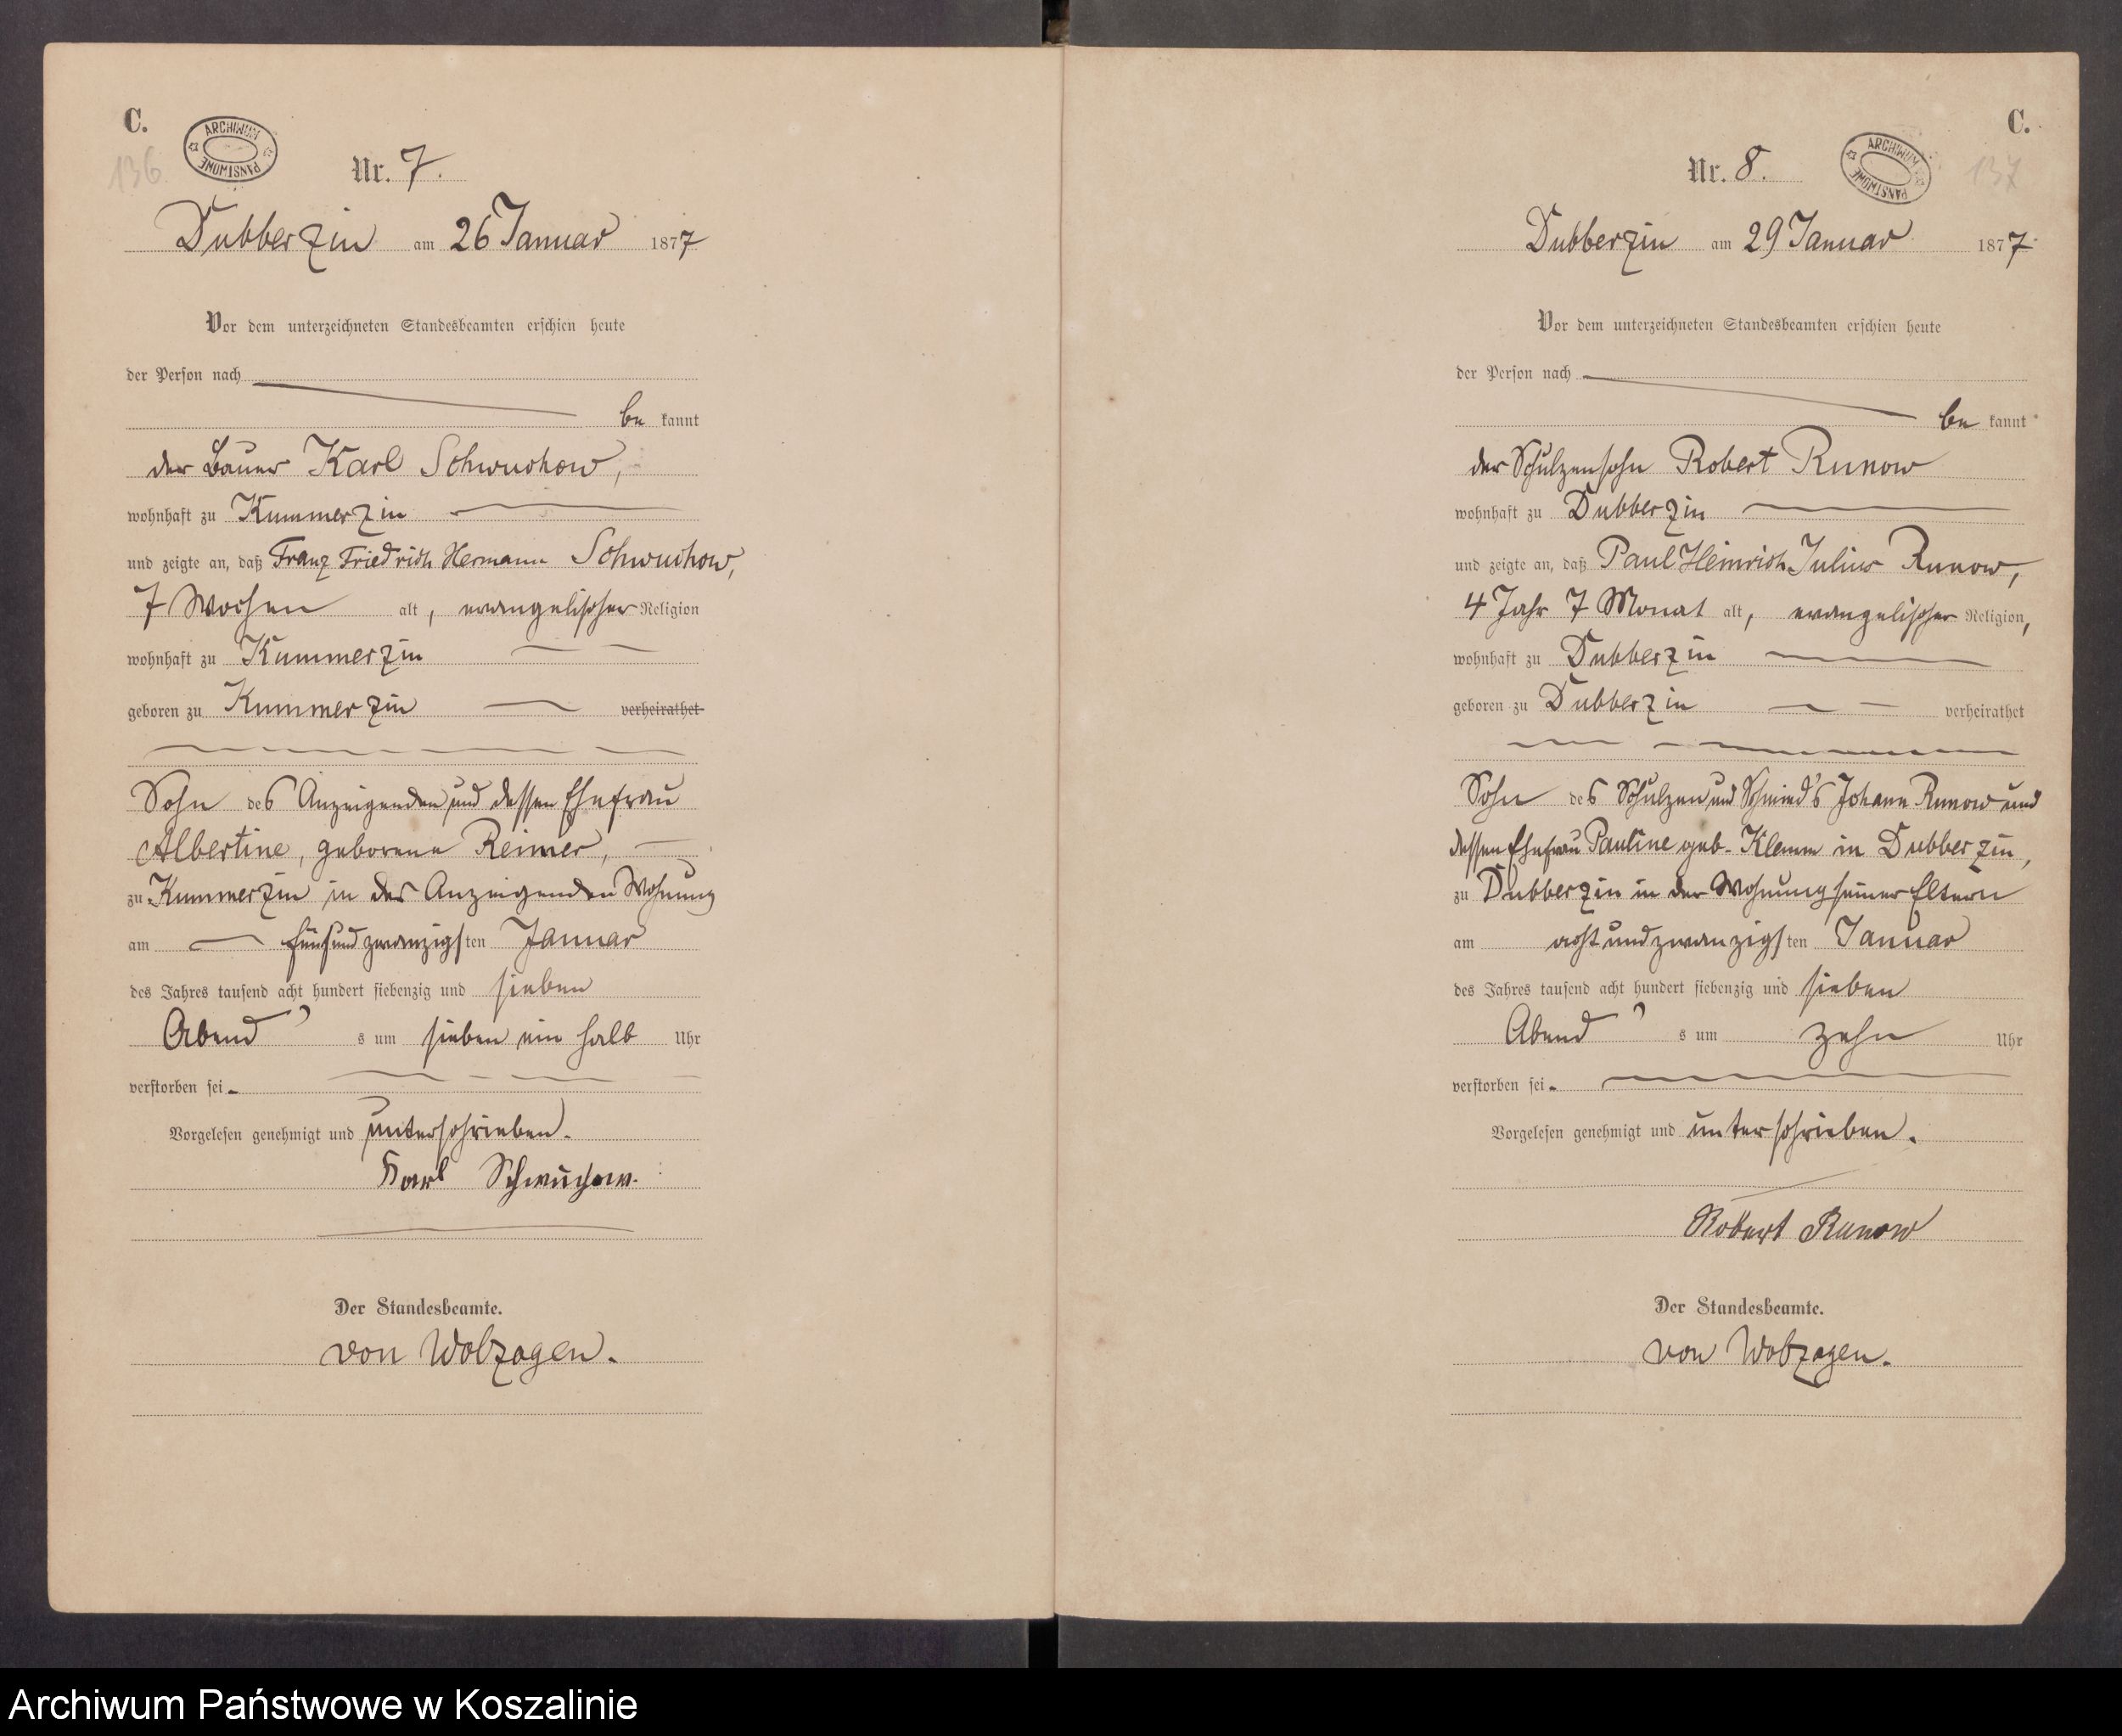 C.
136
ARCHIWUM PAŃSTWOWE
Nr. 7.
Dubberzin am 26 Januar 1877
Vor dem unterzeichneten Standesbeamten erschien heute
der Person nach
be kannt
der Bauer Karl Schwuchow,
wohnhaft zu Kummerzin
und zeigte an, daß Franz Friedrich Hermann Schwuchow,
7 Wochen alt, evangelischer Religion
wohnhaft zu Kummerzin
geboren zu Kummerzin verheirathet
Sohn des Anzeigenden und dessen Ehefrau
Albertine, geborene Reimer,
zu Kummerzin in des Anzeigenden Wohnung
am fünfundzwanzigsten Januar
des Jahres tausend acht hundert siebenzig und sieben
Abend s um sieben ein halb Uhr
verstorben sei.
Vorgelesen genehmigt und unterschrieben.
Karl Schwuchow.
Der Standesbeamte.
von Wolzogen.
C.
137
ARCHIWUM PAŃSTWOWE
Nr. 8.
Dubberzin am 29 Januar 1877.
Vor dem unterzeichneten Standesbeamten erschien heute
der Person nach
be kannt
der Schulzensohn Robert Runow
wohnhaft zu Dubberzin
und zeigte an, daß Paul Heinrich Julius Runow,
4 Jahr 7 Monat alt, evangelischer Religion,
wohnhaft zu Dubberzin
geboren zu Dubberzin verheirathet
Sohn des Schulzen und Schmied's Johann Runow und
dessen Ehefrau Pauline geb. Klemm in Dubberzin,
zu Dubberzin in der Wohnung seiner Eltern
am acht und zwanzigsten Januar
des Jahres tausend acht hundert siebenzig und sieben
Abend s um zehn Uhr
verstorben sei.
Vorgelesen genehmigt und unterschrieben.
Robert Runow
Der Standesbeamte.
von Wolzogen.
Archiwum Państwowe w Koszalinie